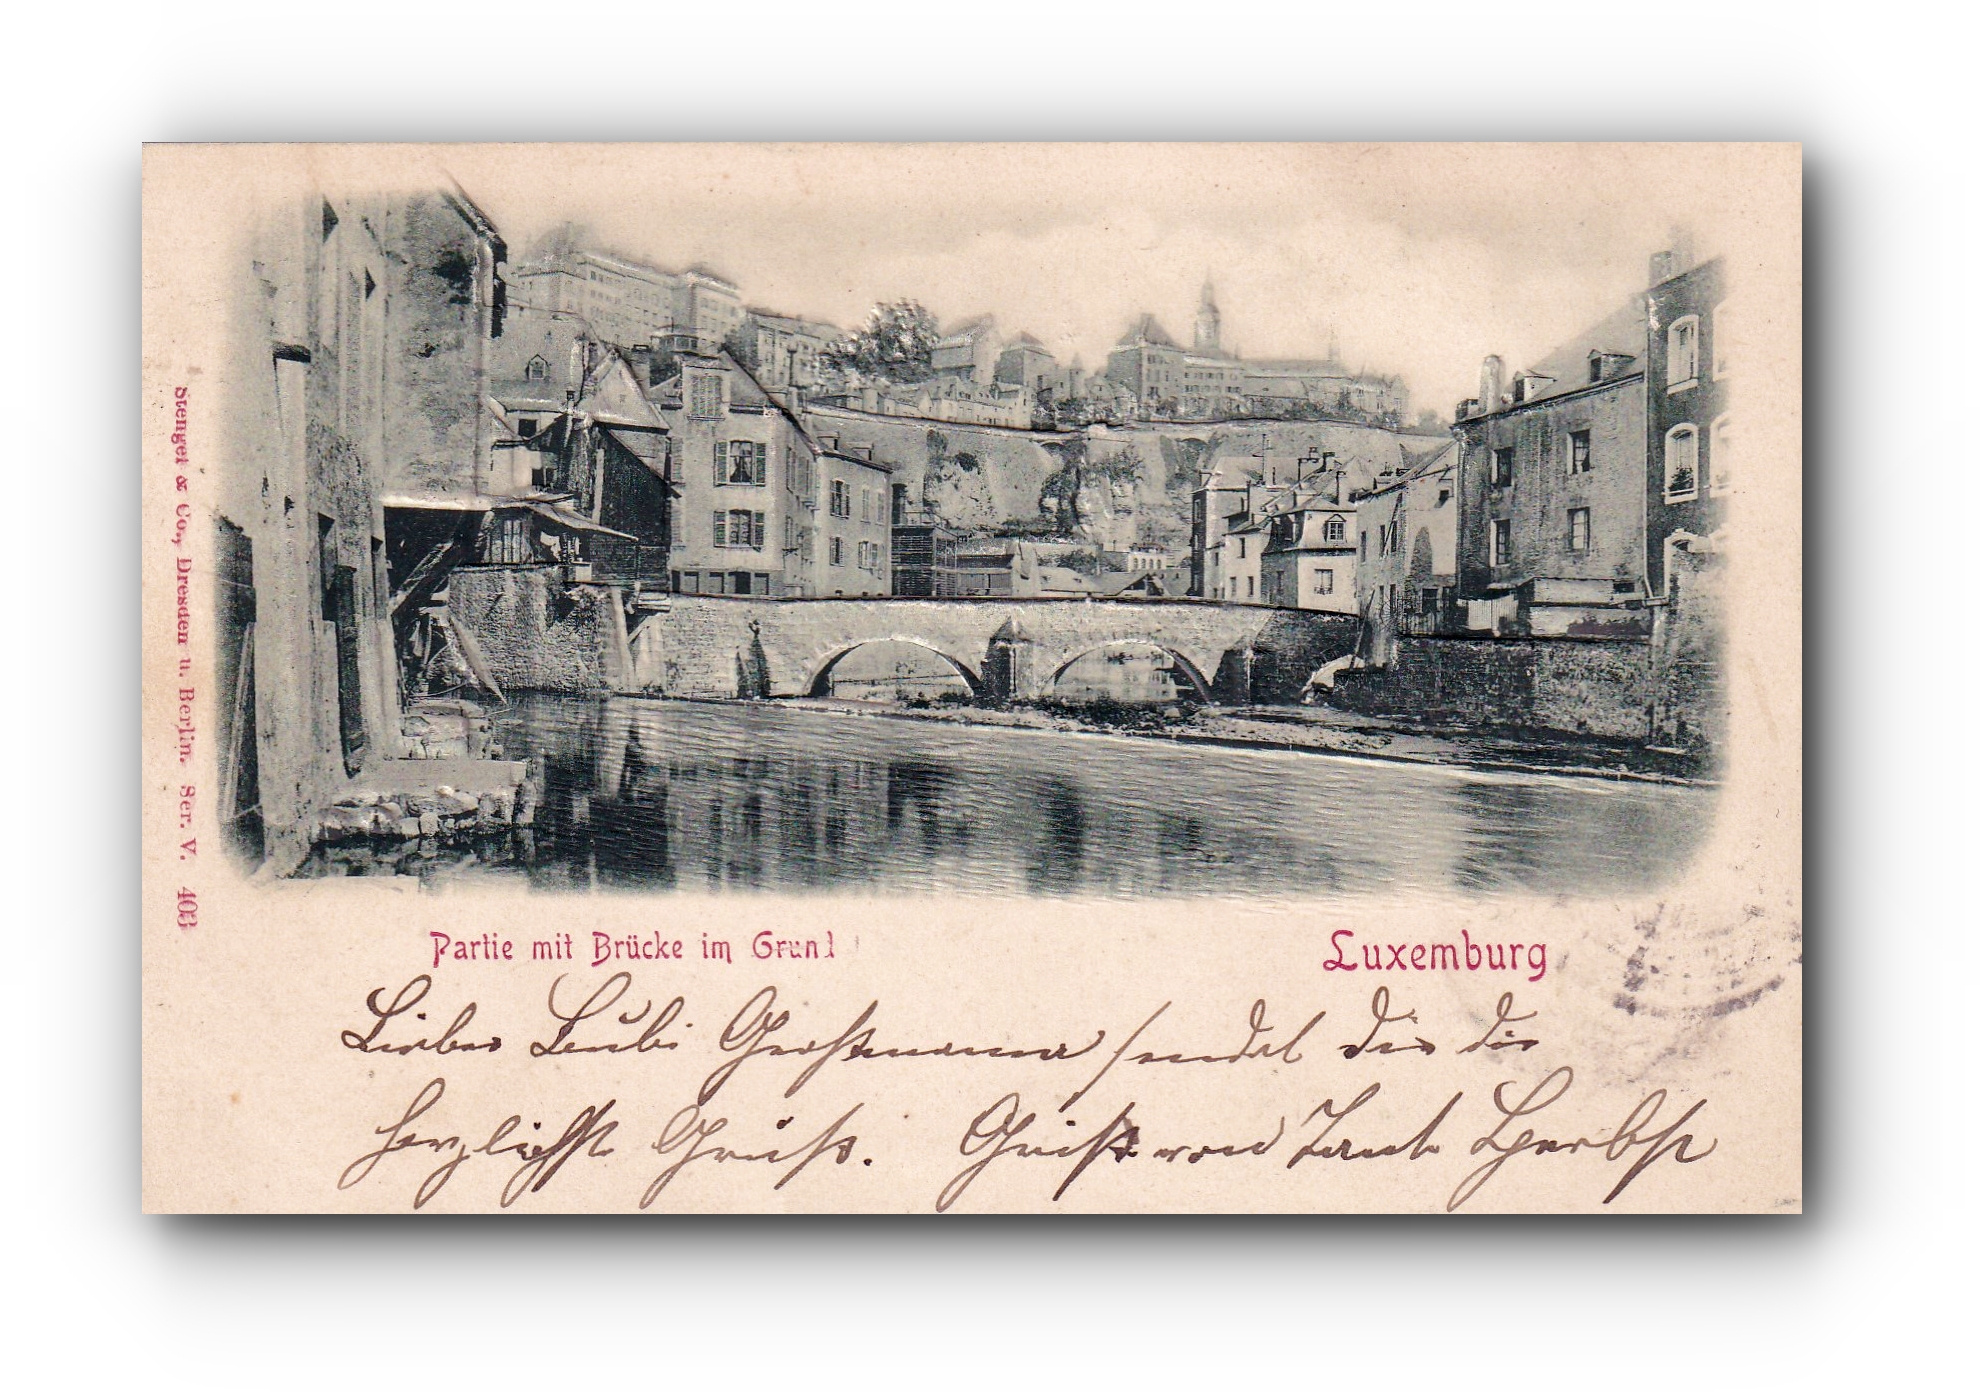 Stengel & Co., Dresden u. Berlin. Ser. V. 403
Partie mit Brücke im Grund
Luxemburg
Lieber Großmama sendet dir die
herzlichste Grüße. Gruß von Tante